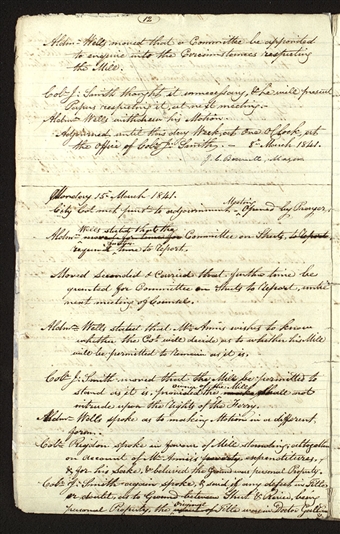 12
Aldn. Wells moved that a Committee be appointed
to enquire into the Circumstances respecting
the Mill.
Col. J. Smith thought it unnecessary, & he will present
Papers respecting it, at next meeting.
Aldn. Wells withdrew his Motion.
Adjourned until this day Week at One O'Clock, at
the Office of Col. J. Smith. — 8th March 1841.
J. C. Bennett, Mayor
Monday 15th March 1841.
City Col. met purst. to adjournment, Meeting Opened by Prayer.
Aldn. Wells stated that the Committee on Streets, to Report
time to Report.
Moved Seconded & Carried that further time be
granted for Committee on Streets to Report, until
next meeting of Council.
Aldn. Wells stated that Mr. Annis wishes to know
whether the Col. will decide as to whether his Mill
will be permitted to Remain as it is.
Col. J. Smith moved that the Mill be permitted to
stand as it is. provided the owner of the Mill shall not
intrude upon the Rights of the Ferry.
Aldn. Wells spoke as to making Motion in a different
form.
Col. Rigdon spoke in favour of Mill standing, altogether
on account of Mr. Annis's poverty, expenditures,
& for his Sake, & believed the Ground was personal Property.
Col. J. Smith again spoke, & said if any defect in Title
or doubt, as to Ground between Street & River, being
personal Property, the of Title was in Doctor Galland